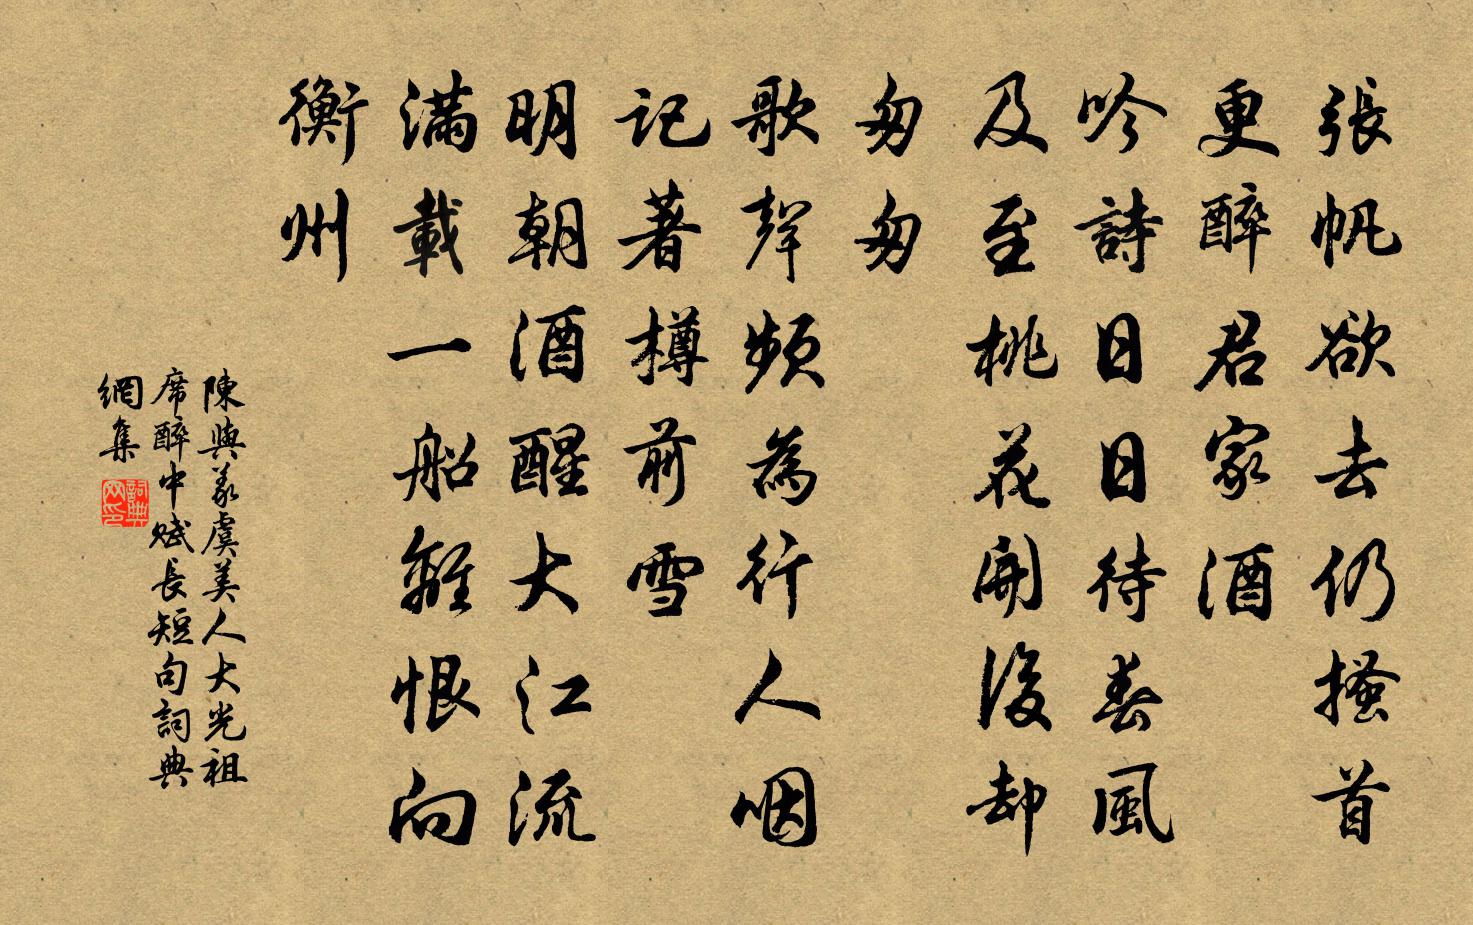 張帆欲去仍搔首
更醉君家酒
吟詩日日待春風
及至桃花開後却
匆匆
歌聲頻為行人咽
記著樽前雪
明朝酒醒大江流
滿載一船離恨向
衡州
陳與義虞美人大光祖
席醉中賦長短句詞典
網集
詞典
网印